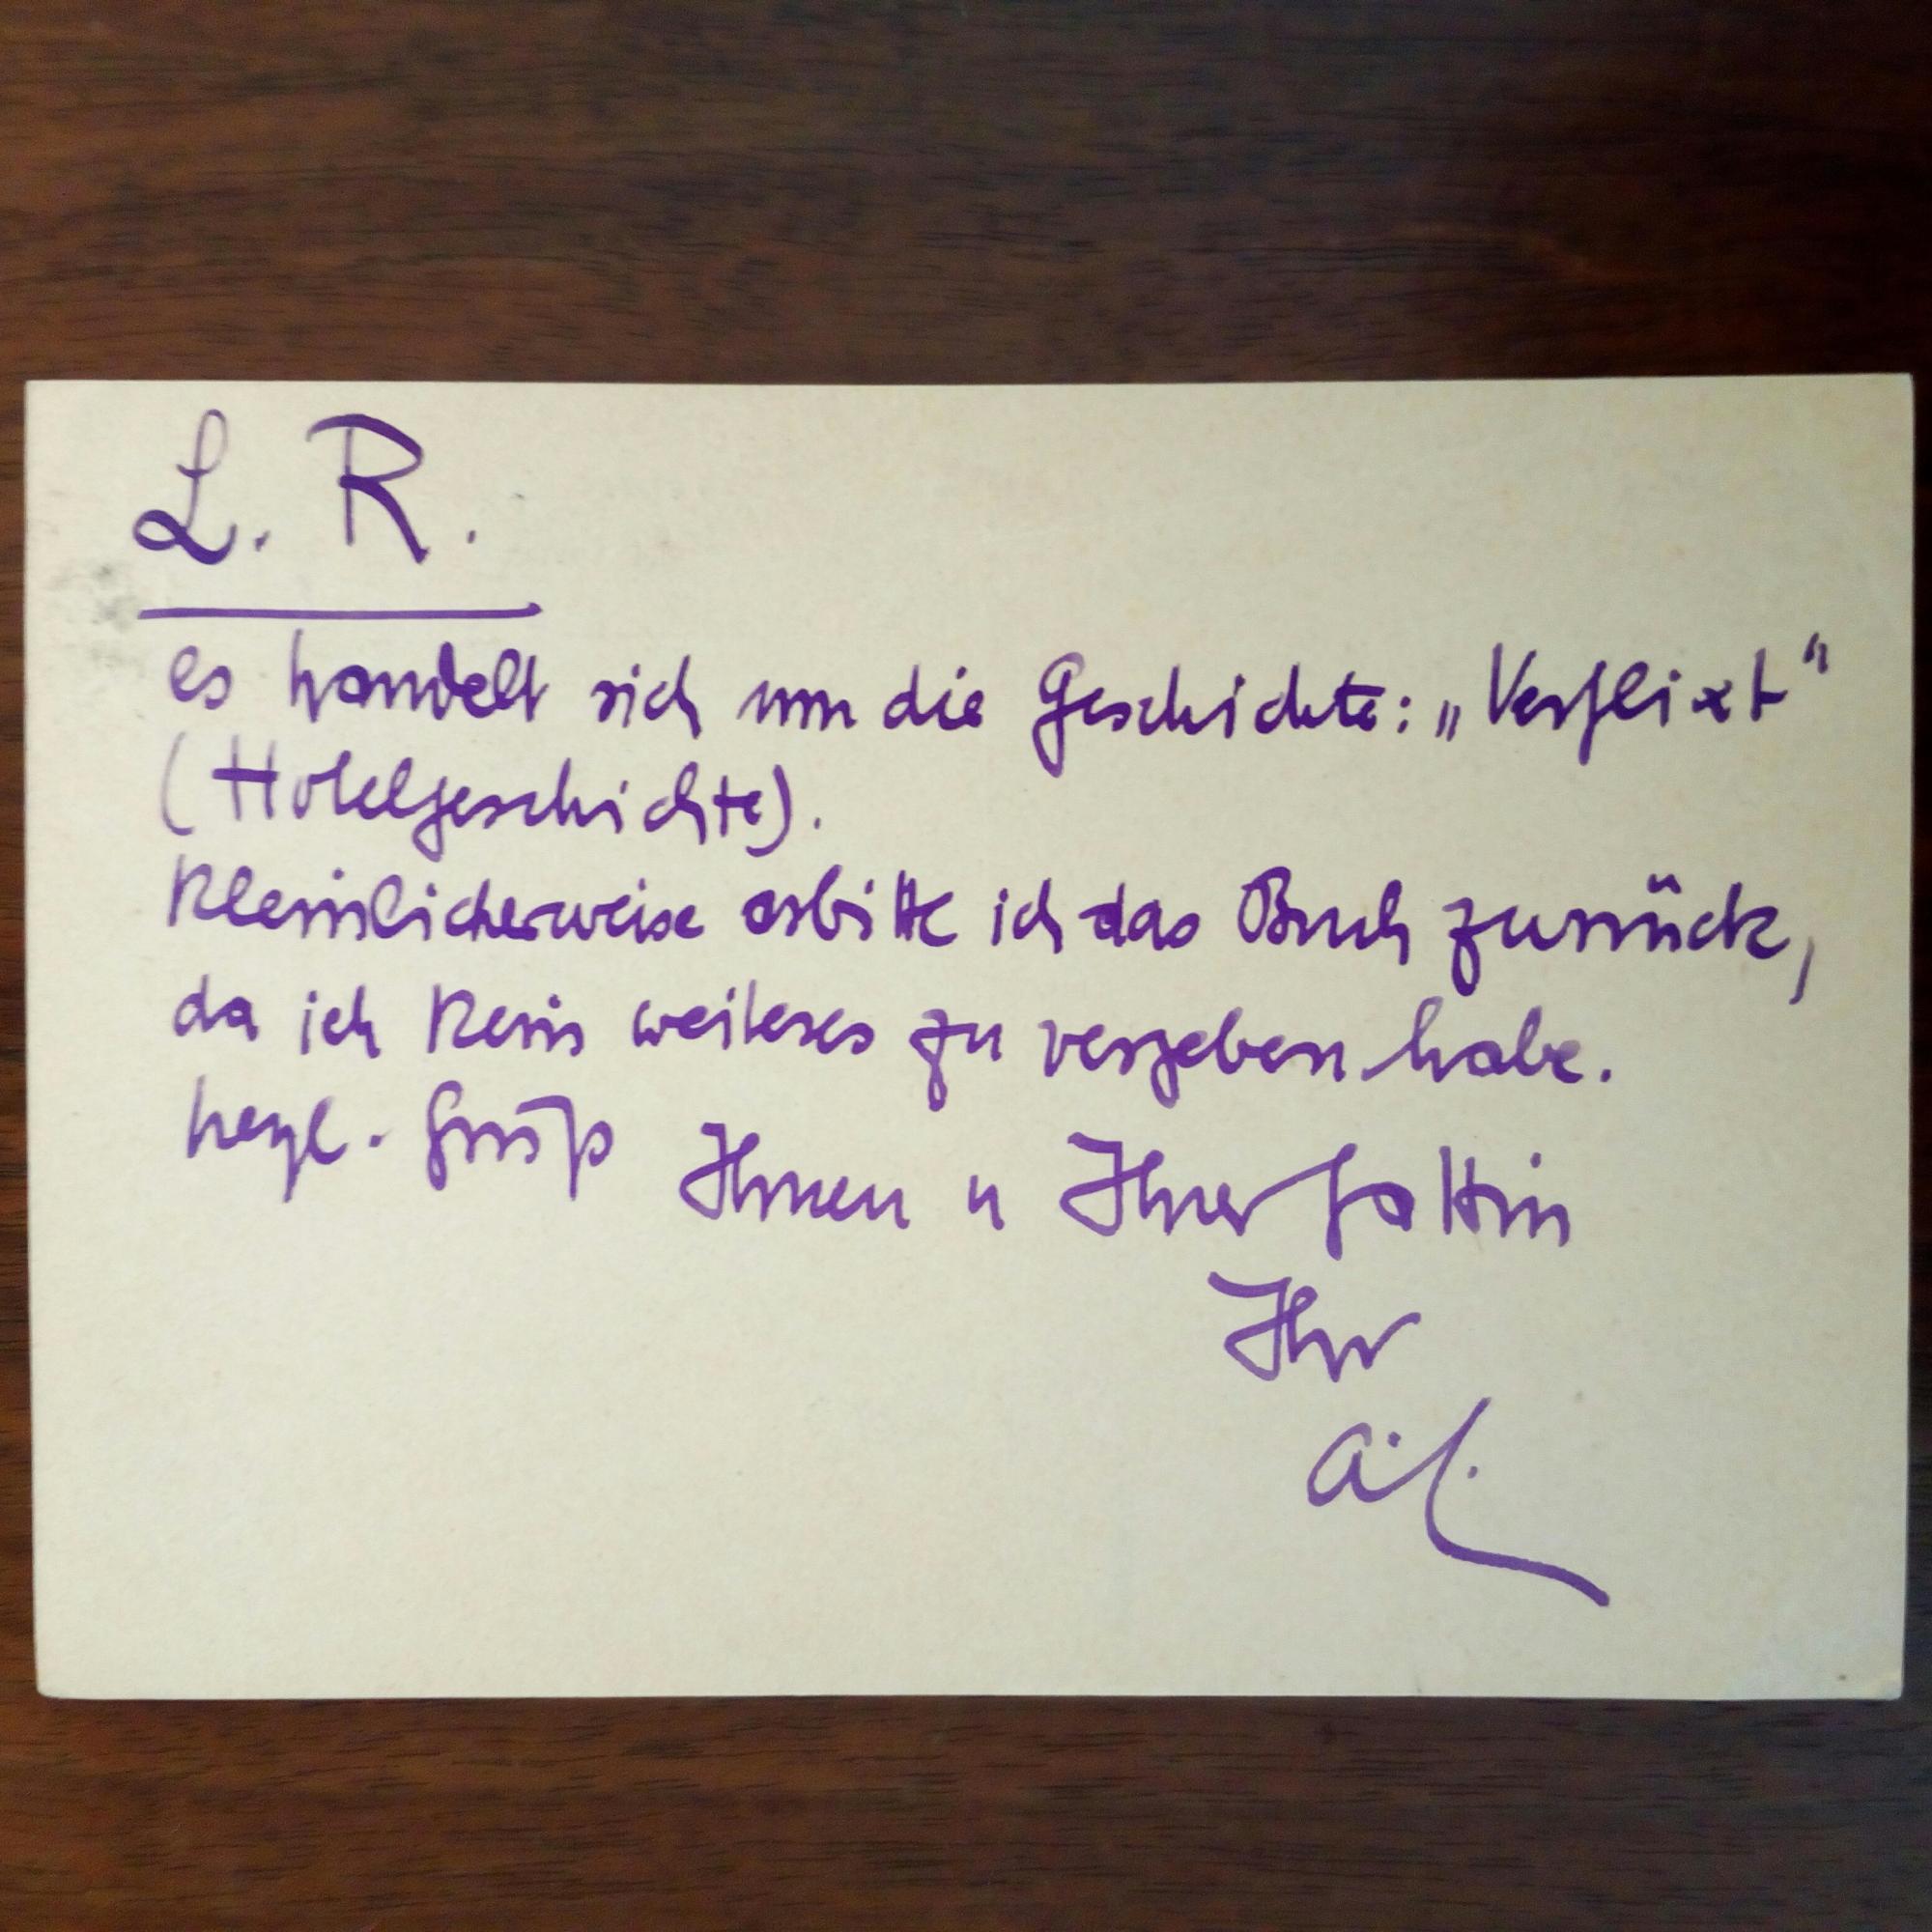 L. R.
es handelt sich um die Geschichte: „Verflixt"
(Hotelgeschichte).
Kleinlicherweise erbitte ich das Buch zurück,
da ich kein weiteres zu vergeben habe.
herzl. Gruß Ihnen u Ihrer Gattin
Ihr